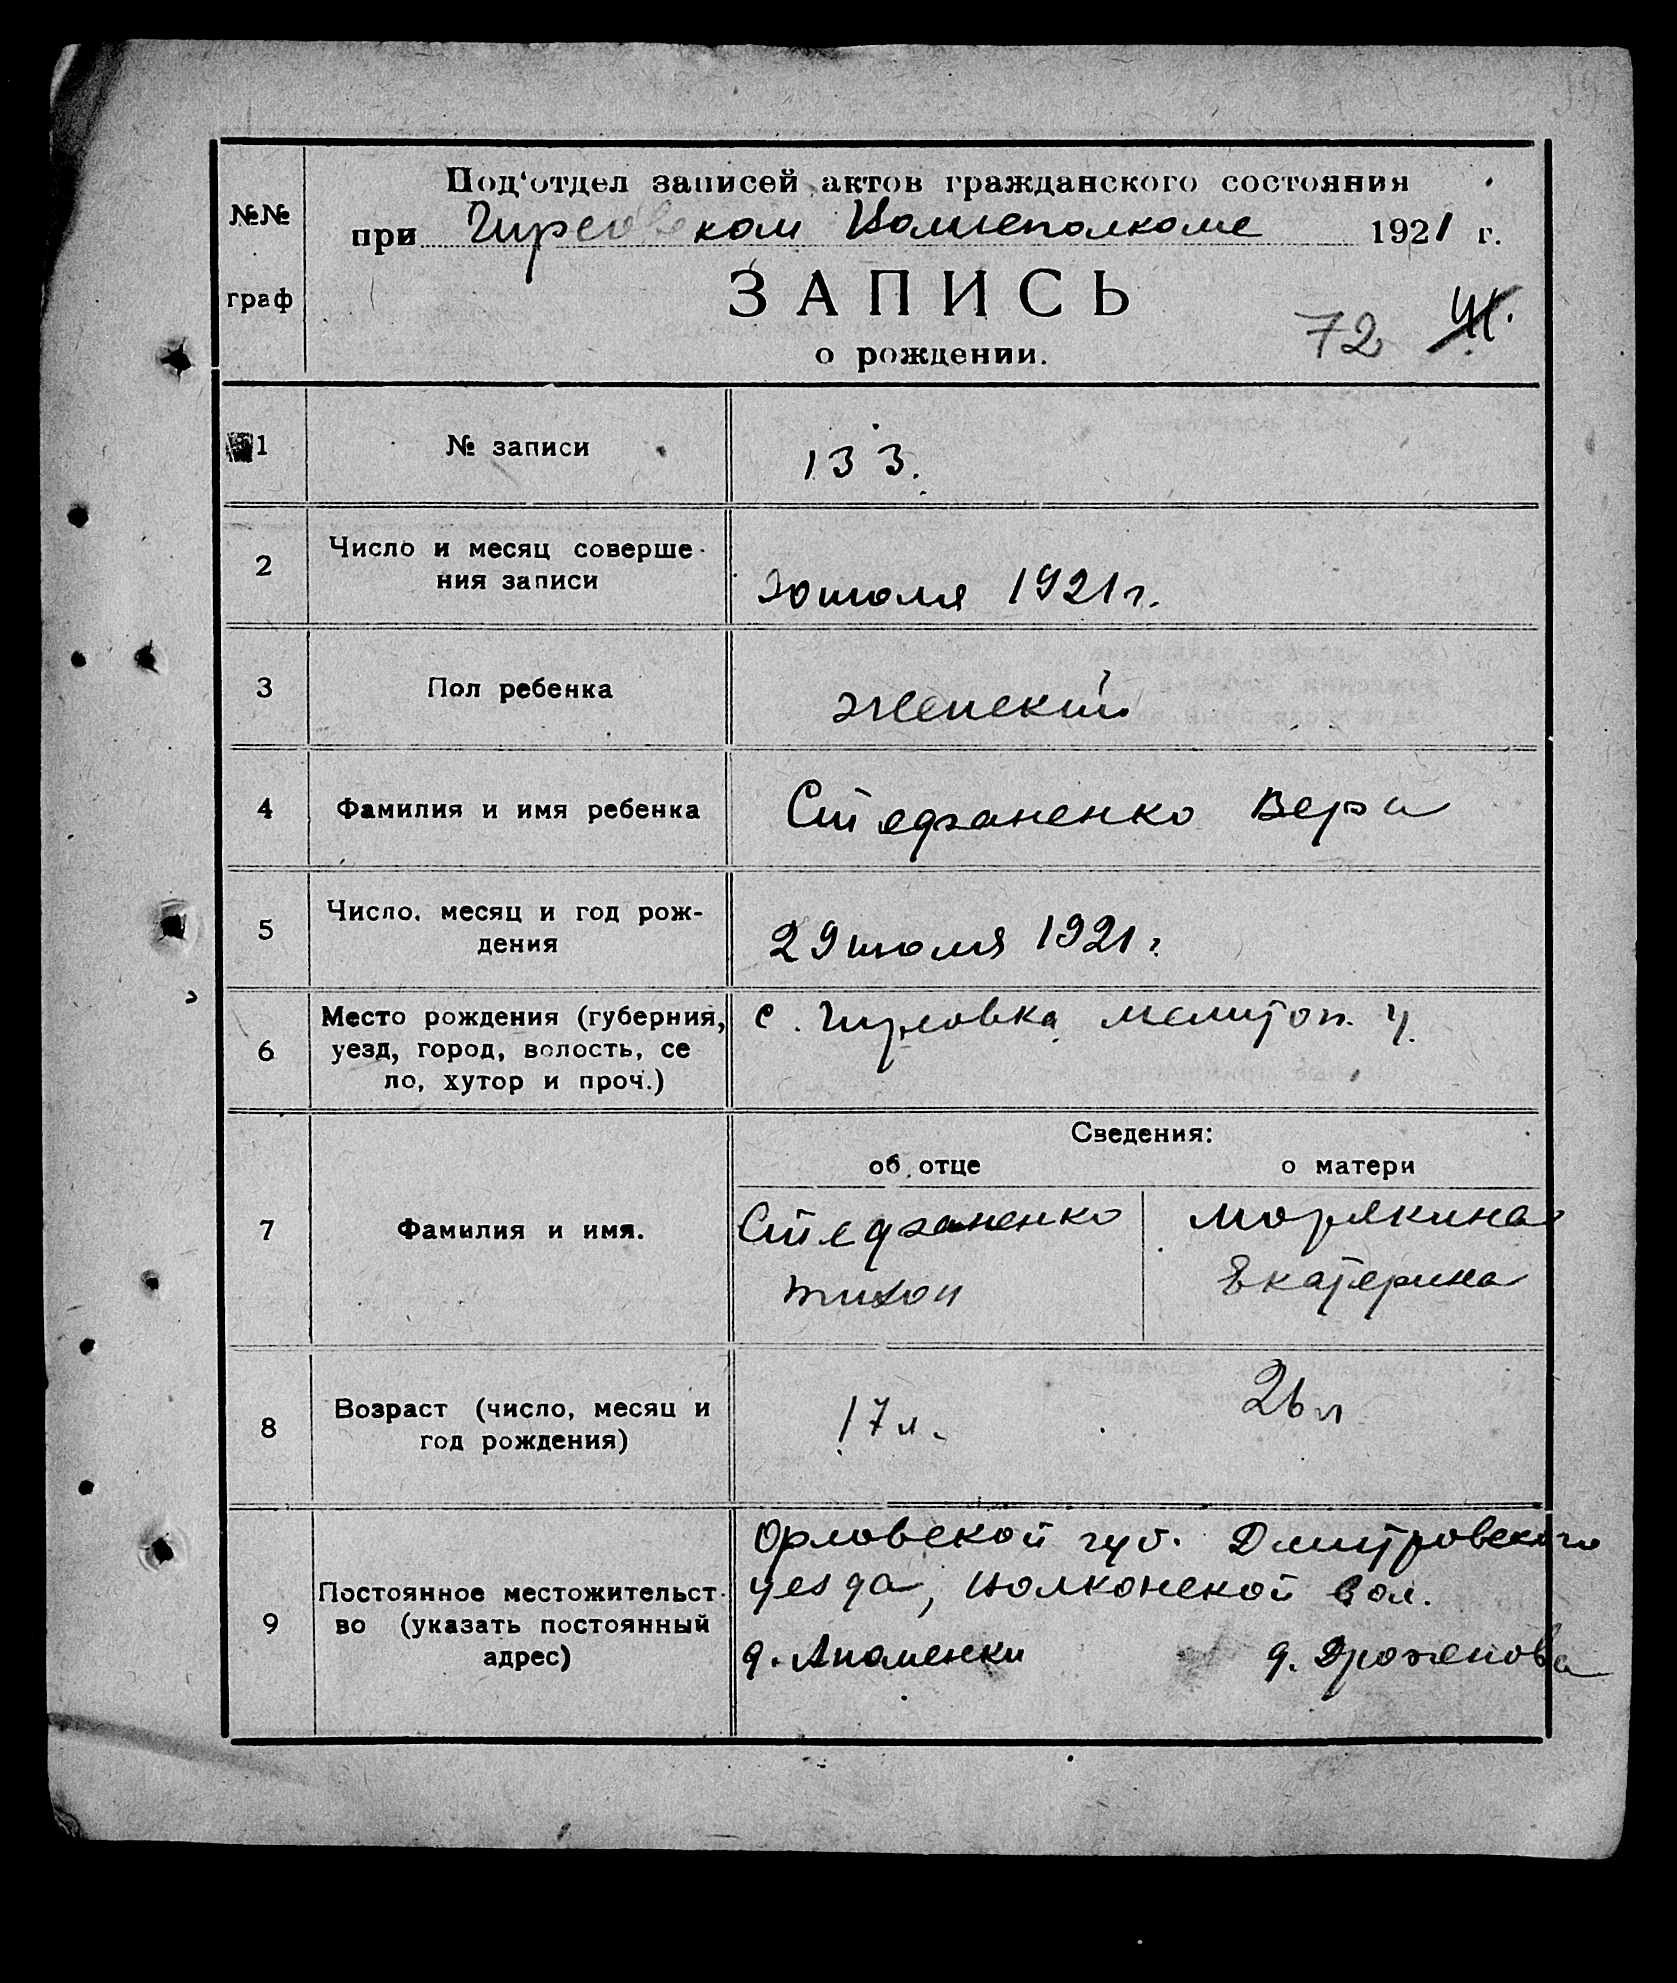 №№
граф
Под'отдел записей актов гражданского состояния
при ком Волисполкоме 1921 г.
ЗАПИСЬ
72
о рождении.
1 № записи 133.
2 Число и месяц соверше-
ния записи
30 июля 1921 г.
3 Пол ребенка женский
4 Фамилия и имя ребенка Стефаненко Вера
5 Число, месяц и год рож-
дения
29 июля 1921 г.
6 Место рождения (губерния,
уезд, город, волость, се
ло, хутор и проч.)
с. Гирсовка Мелитоп. у.
Сведения:
об отце о матери
7 Фамилия и имя.
Стефаненко
Тихон
Морякина
Екатерина
8 Возраст (число, месяц и
год рождения)
17 л. 26 л
9 Постоянное местожительст-
во (указать постоянный
адрес)
Орловской губ. Дмитровского
уезда, Волконской вол.
д. д.